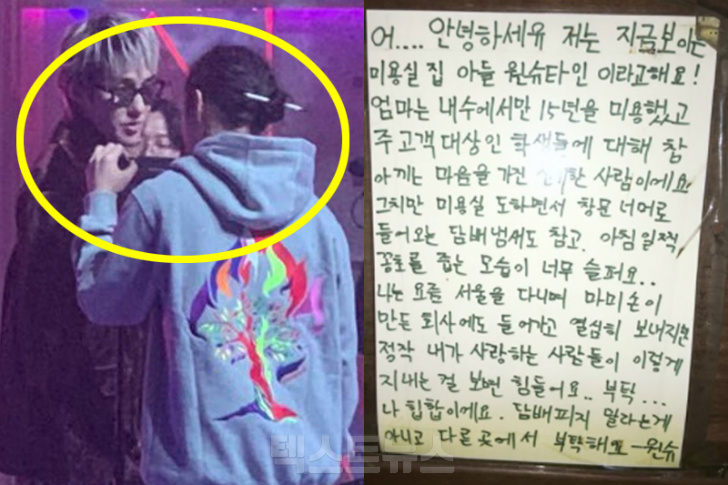 어.... 안녕하세유 저는 지금보이는
미용실 집 아들 원슈타인 이라고해요!
엄마는 내수에서만 15년을 미용했고
주 고객 대상인 학생들에 대해 참
아끼는 마음을 가진 사람이에요
그치만 미용실 도하면서 창문 너머로
들어오는 담배냄새도 참고. 아침 일찍
꽁초를 줍는 모습이 너무 슬퍼요..
나는 요즘 서울을 다니며 마미손이
만든 회사에도 들어가고 열심히 보내지만
정작 내가 사랑하는 사람들이 이렇게
지내는 걸 보면 힘들어요.. 부탁...
나 힙합이에요. 담배피지 말라는게
아니고 다른 곳에서 부탁해요 -원슈
텍스트뉴스